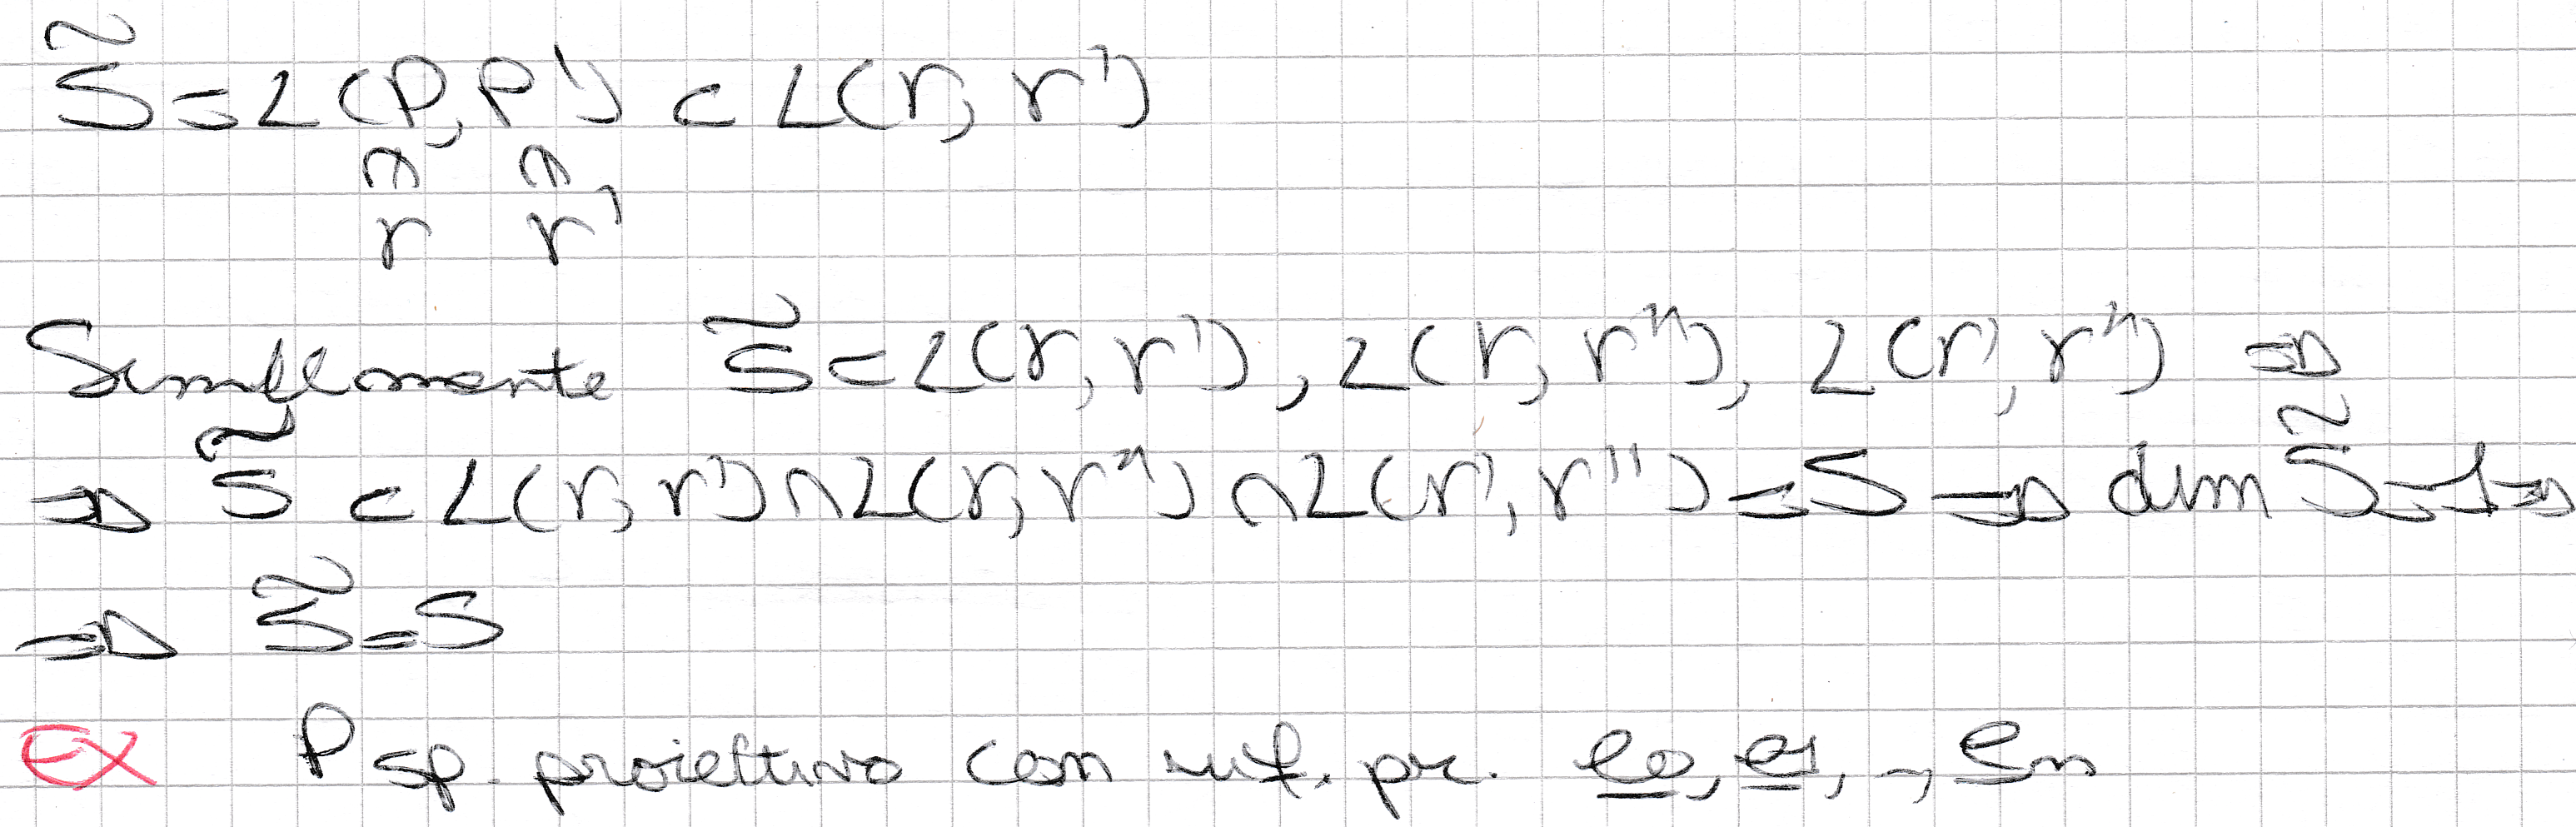 S̃ = L(P, P') ⊂ L(r, r')
∩ ∩
r r'
Similmente S̃ ⊂ L(r, r'), L(r, r''), L(r', r'') ⇒
⇒ S̃ ⊂ L(r, r') ∩ L(r, r'') ∩ L(r', r'') = S ⇒ dim S̃ = 1 ⇒
⇒ S̃ = S
EX P sp. proiettivo con rif. pr. e̲₀, e̲₁, .., e̲ₙ